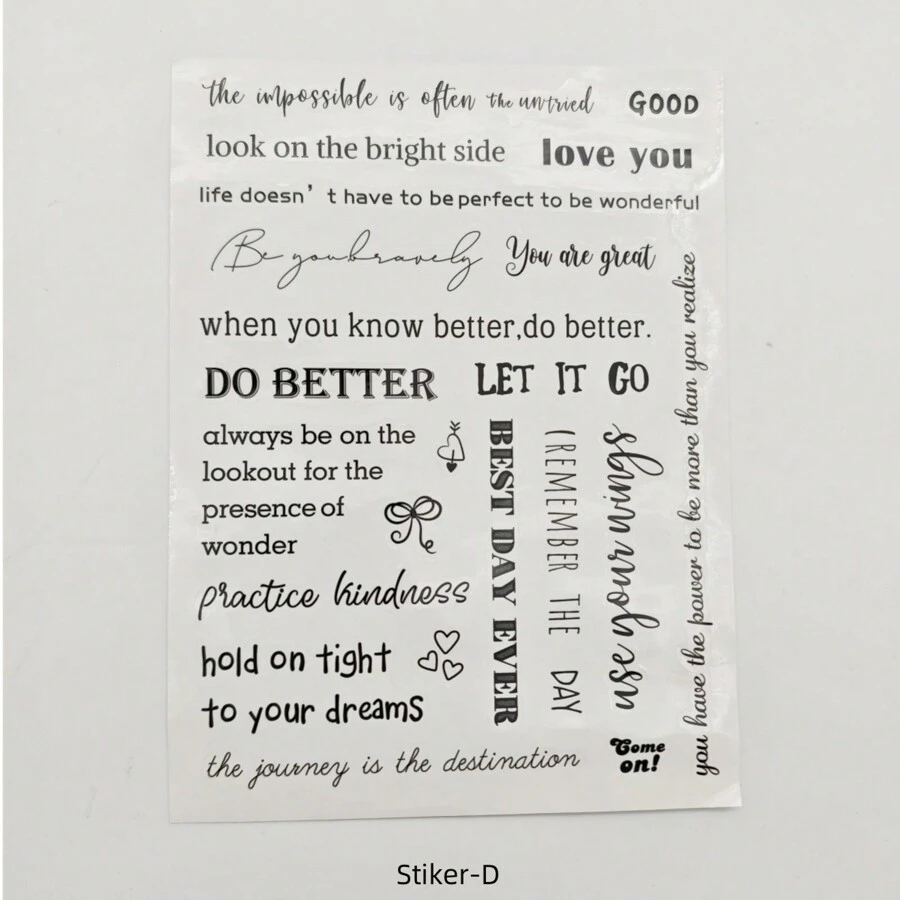 the impossible is often the untried
GOOD
look on the bright side
love you
life doesn't have to be perfect to be wonderful
Be you bravely
You are great
when you know better,do better.
DO BETTER
LET IT GO
always be on the
lookout for the
presence of
wonder
practice kindness
hold on tight
to your dreams
the journey is the destination
BEST DAY EVER
(REMEMBER THE DAY
use your wings
you have the power to be more than you realize
Come
on!
Stiker-D